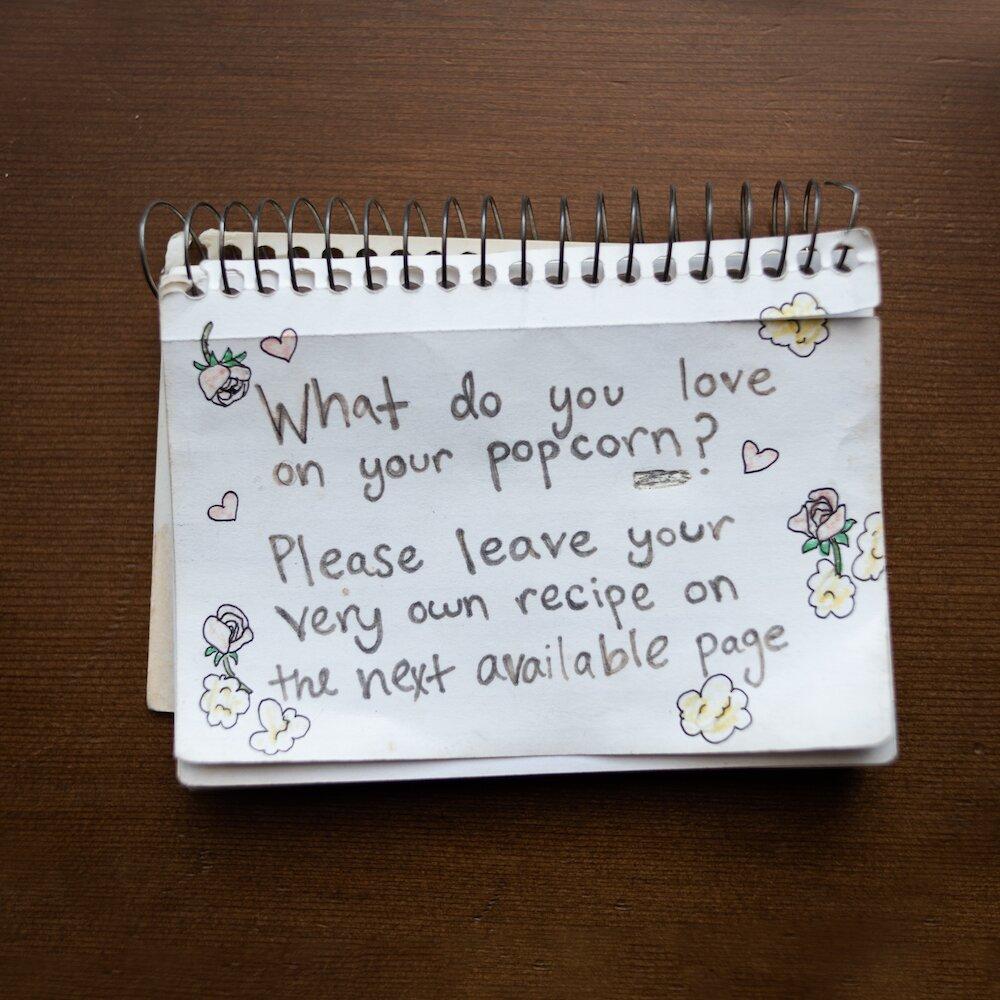 What do you love
on your popcorn?
Please leave your
very own recipe on
the next available page